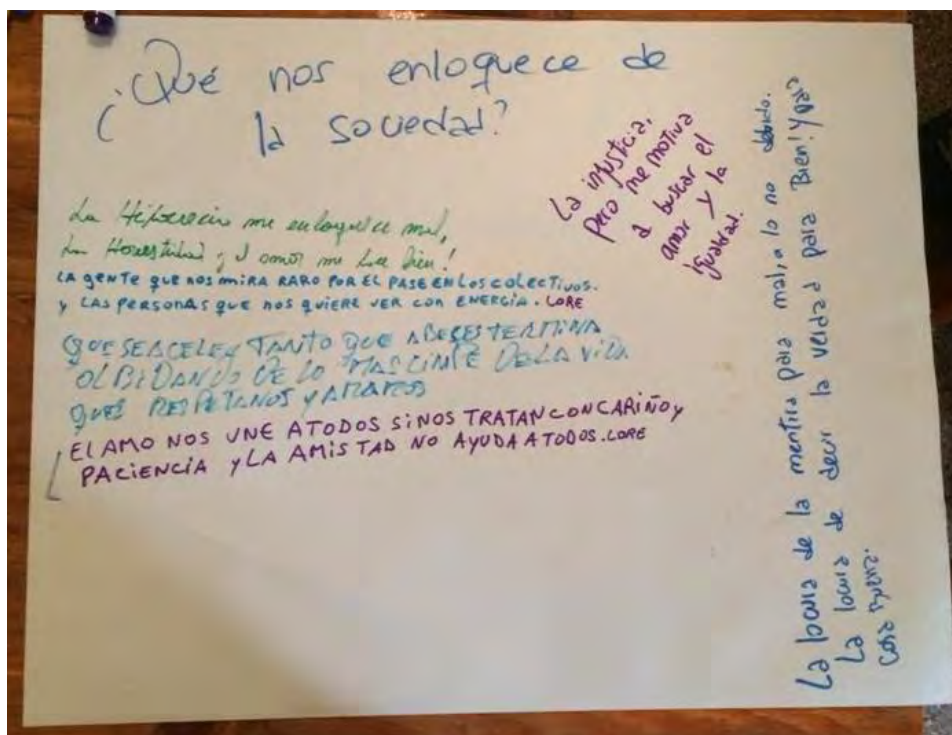 ¿Qué nos enloquece de
la sociedad?
La Hipocrecia me enloquece mal,
La Honestidad y el amor me hace bien!
LA GENTE QUE NOS MIRA RARO POR EL PASE EN LOS COLECTIVOS.
y LAS PERSONAS QUE NOS QUIERE VER CON ENERGÍA. LORE
QUE SE ACELEN TANTO QUE ABECES TERMINA
OLBIDANDO DE LO MAS LINDE DE LA VIDA
QUES RESPETARNOS Y AMARNOS
EL AMO NOS UNE A TODOS SI NOS TRATAN CON CARIÑO y
PACIENCIA y LA AMISTAD NO AYUDA A TODOS. LORE
La injusticia,
pero me motiva
a buscar el
amor y la
igualdad.
La locura de la mentira para mal, a lo no debido.
La locura de decir la verdad para Bien! Y para
cosa buena.